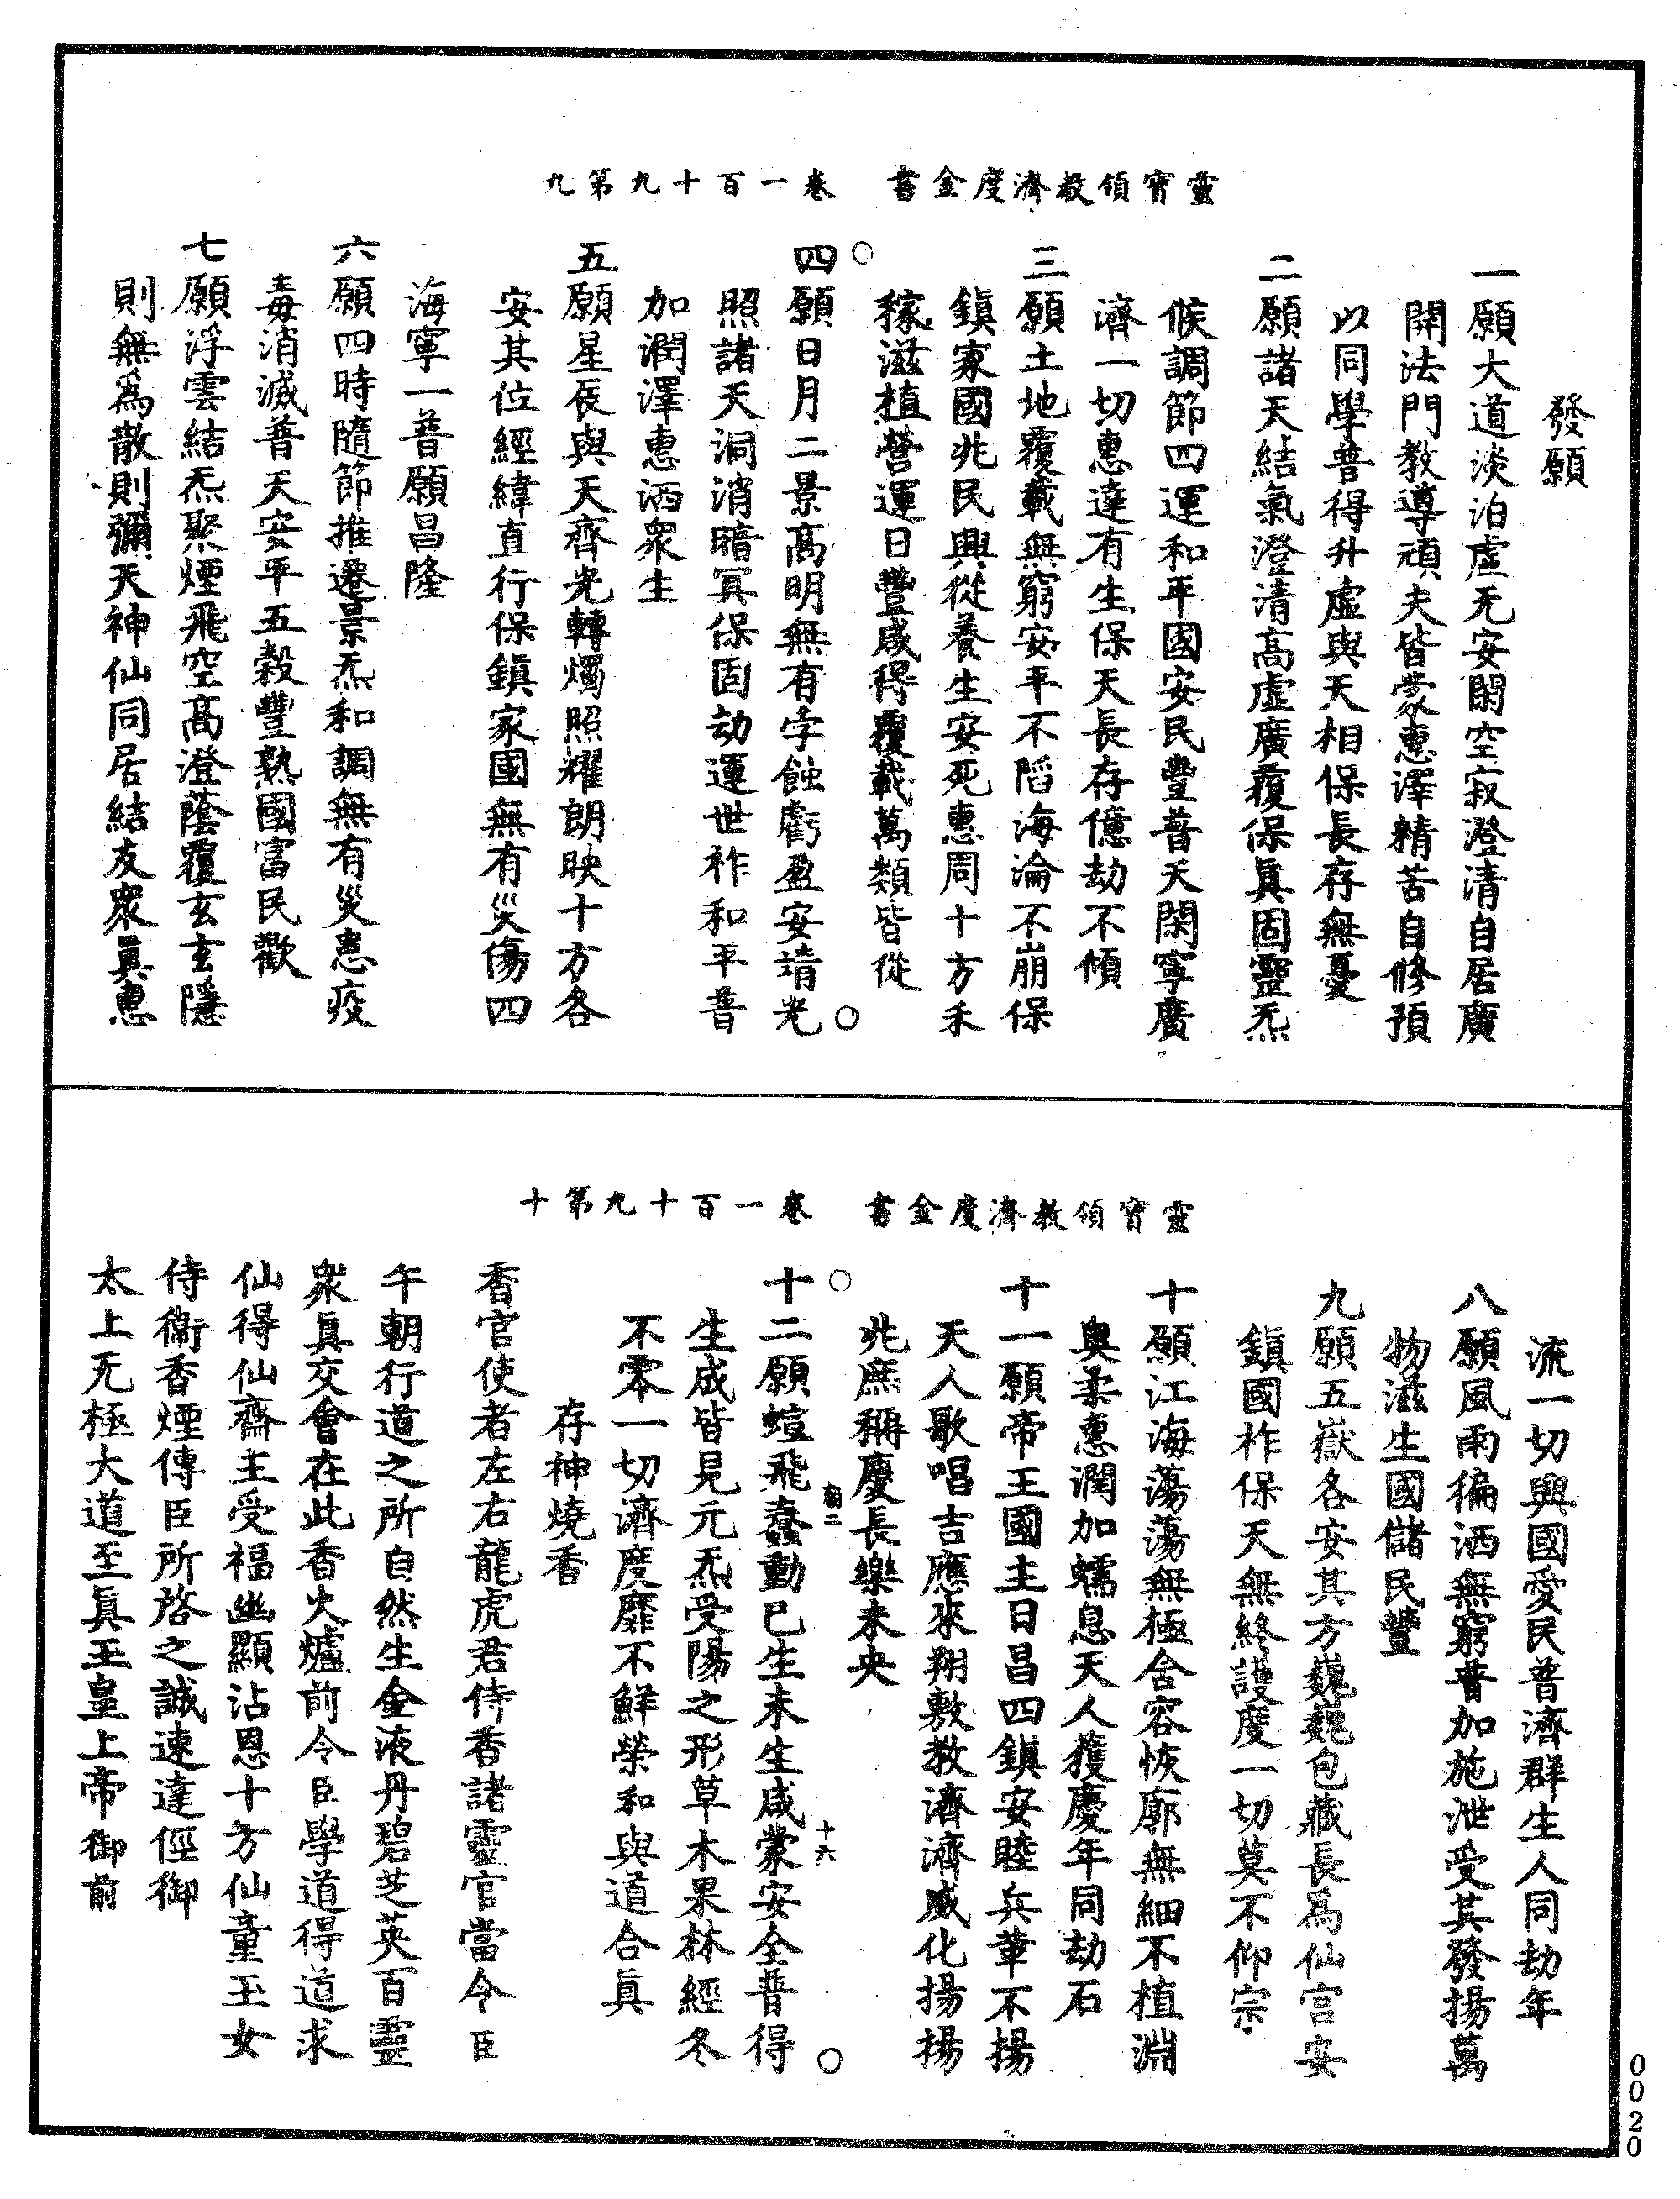 靈寶領教濟度金書 卷一百十九第九
發願
一願大道淡泊虛无安閑空寂澄清自居廣
開法門教導頑夫皆蒙惠澤精苦自修預
以同學普得升虛與天相保長存無憂
二願諸天結氣澄清高虛廣覆保眞固靈炁
候調節四運和平國安民豐普天閑寧廣
濟一切惠達有生保天長存億劫不傾
三願土地覆載無窮安平不陷海淪不崩保
鎮家國兆民興從養生安死惠周十方禾
稼滋植營運日豐咸得覆載萬類皆從
四願日月二景高明無有孛蝕虧盈安靖光
照諸天洞消暗冥保固劫運世祚和平普
加潤澤惠洒衆生
五願星辰與天齊光轉燭照耀朗映十方各
安其位經緯直行保鎮家國無有災傷四
海寧一普願昌隆
六願四時隨節推遷景炁和調無有災恚疫
毒消滅普天安平五穀豐熟國富民歡
七願浮雲結炁聚煙飛空高澄蔭覆玄玄隱
則無爲散則彌天神仙同居結友衆眞惠
靈寶領教濟度金書 卷一百十九第十
流一切興國愛民普濟群生人同劫年
八願風雨徧洒無窮普加施泄受其發揚萬
物滋生國儲民豐
九願五嶽各安其方巍巍包藏長爲仙宫安
鎮國祚保天無終護度一切莫不仰宗
十願江海蕩蕩無極含容恢廓無細不植淵
奥柔惠潤加蠕息天人獲慶年同劫石
十一願帝王國主日昌四鎮安睦兵革不揚
天人歌唱吉應來翔敷教濟濟威化揚揚
兆庶稱慶長樂未央
十二願蝖飛蠢動已生未生咸蒙安全普得
生成皆見元炁受陽之形草木果林經冬
不零一切濟度靡不鮮榮和與道合眞
存神燒香
香官使者左右龍虎君侍香諸靈官當令臣
午朝行道之所自然生金液丹碧芝英百靈
衆眞交會在此香火爐前令臣學道得道求
仙得仙齋主受福幽顯沾恩十方仙童玉女
侍衞香煙傳臣所啓之誠速達徑御
太上无極大道至眞玉皇上帝御前
十六
0020